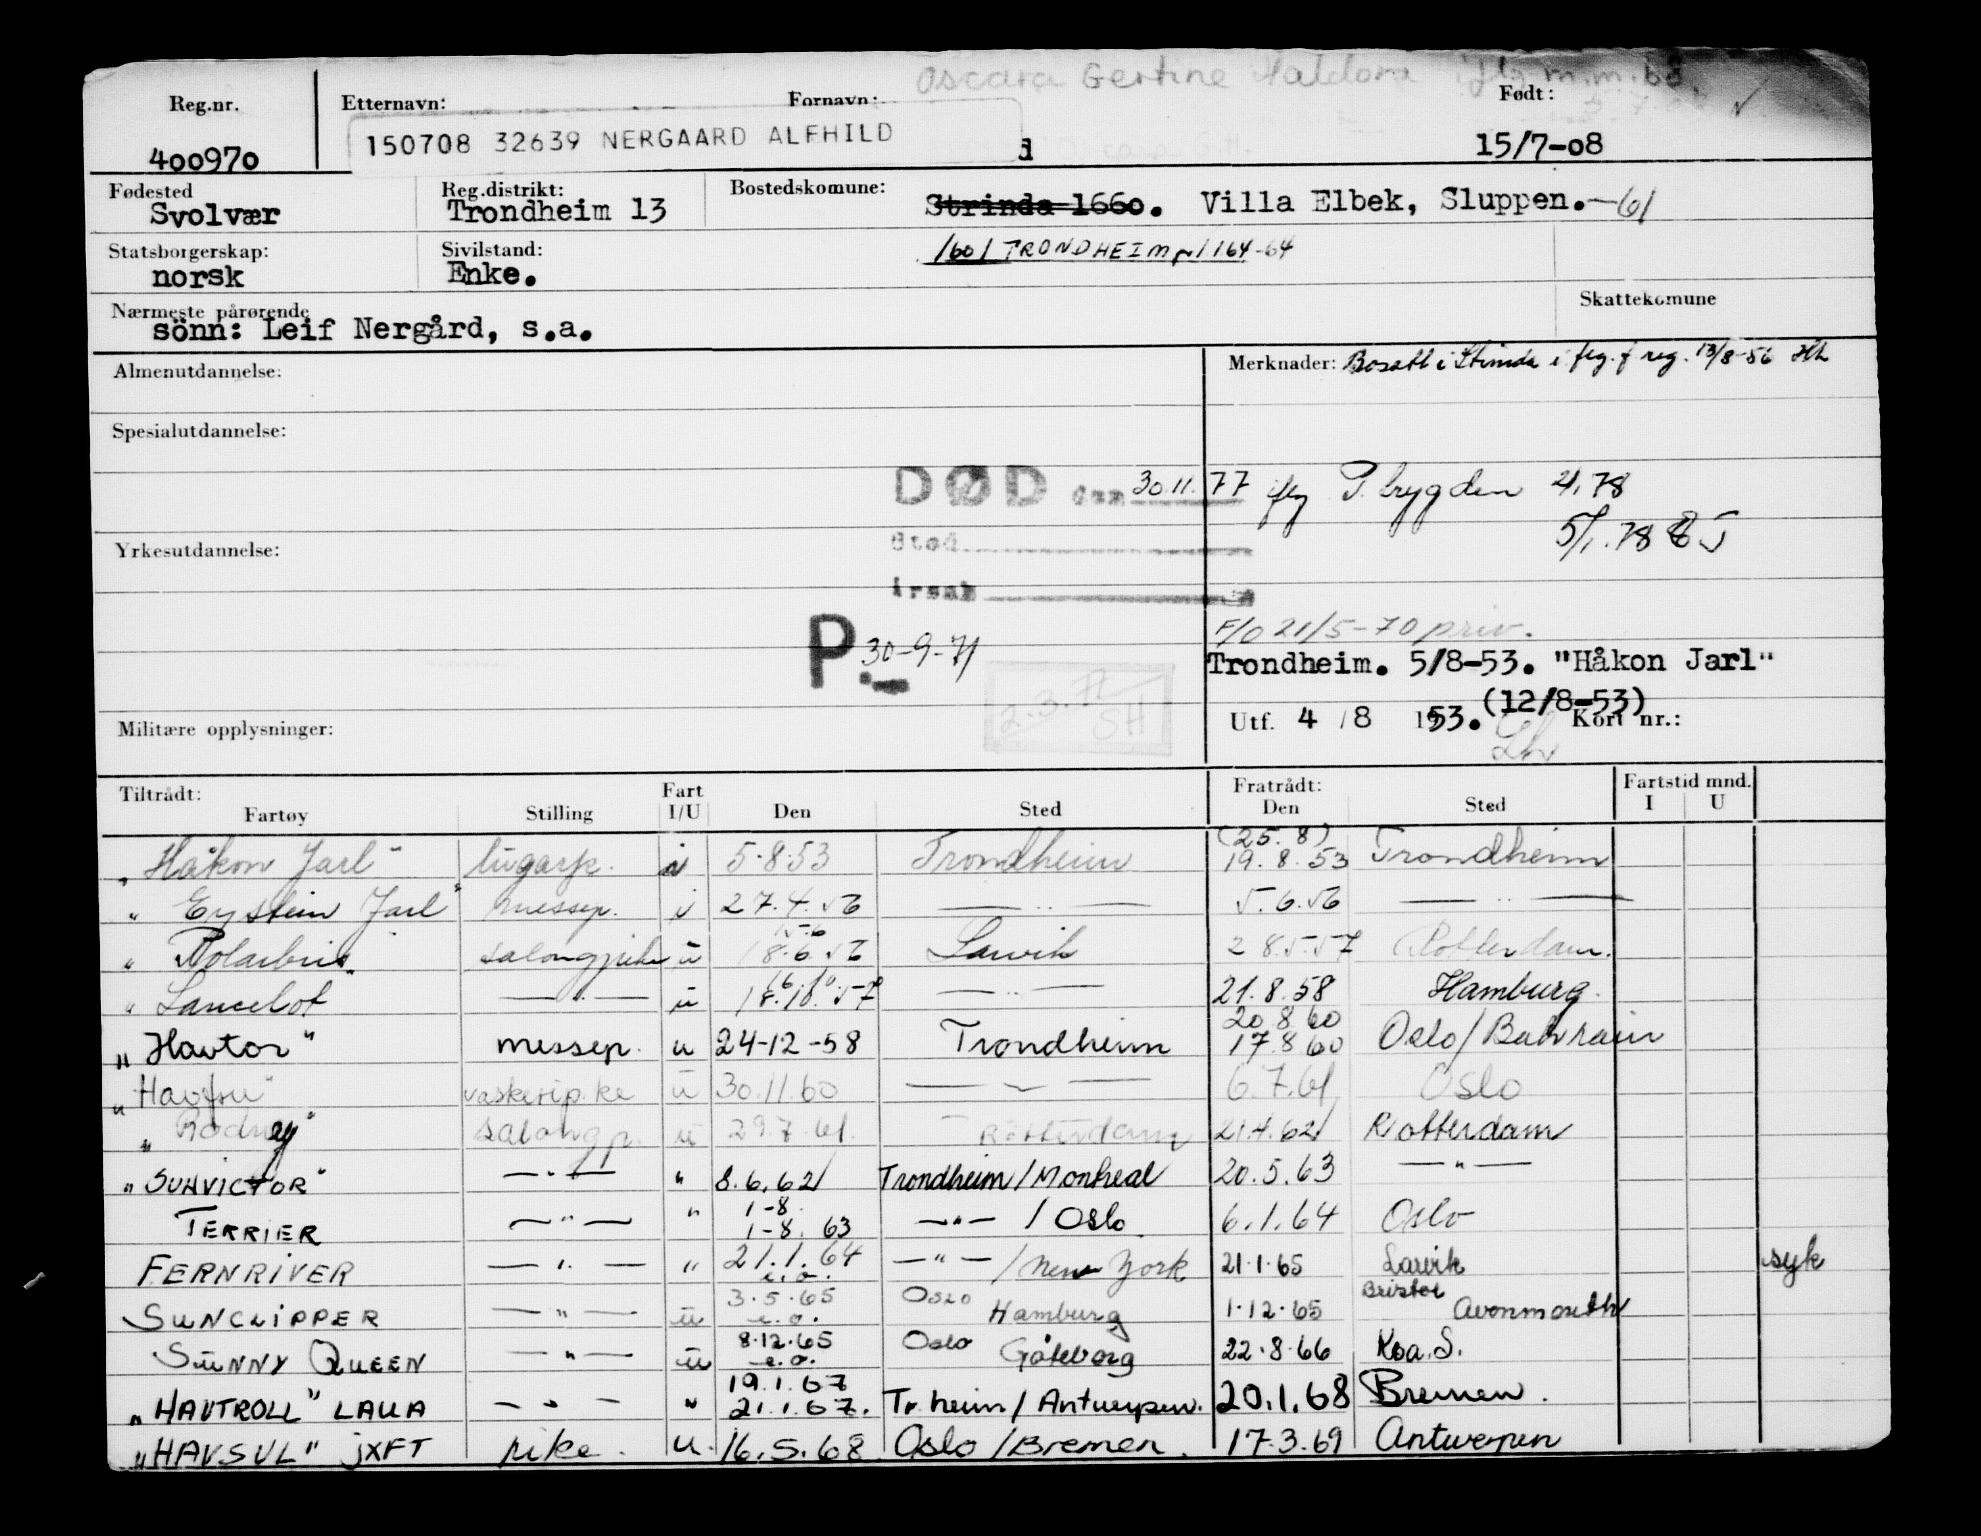 Oscara Gertine Haldora iflg. m.m.bo.
Reg.nr. Etternavn: Fornavn: Født:
400970 150708 32639 NERGAARD ALFHILD d 15/7-08
Fødested Reg.distrikt: Bostedskomune:
Svolvær Trondheim 13 Strinda 1660. Villa Elbek, Sluppen.-61
Statsborgerskap: Sivilstand: 1601 TRONDHEIM 1164-64
norsk Enke.
Nærmeste pårørende Skattekomune
sönn: Leif Nergård, s.a.
Almenutdannelse: Merknader: Bosatt i Strinda i flg. f reg. 13/8-56
Spesialutdannelse:
DØD den 30.11.77 iflg P. brygden 4/1.78
5/1.78
Yrkesutdannelse: Sted
Årsak
F/O 21/5-70 priv.
P.- 30-9-71
Trondheim. 5/8-53. "Håkon Jarl"
(12/8-53)
2.3.72 SH
Militære opplysninger: Utf. 4 / 8 1953. Kort nr.:
Tiltrådt: Fart Fratrådt: Fartstid mnd.
Fartøy Stilling I/U Den Sted Den Sted I U
(25.8)
"Håkon Jarl" lugarp. i 5.8.53 Trondheim 19.8.53 Trondheim
" Eystein Jarl" messep. i 27.4.56 — " — 5.6.56 — " —
15.6
" Polarbris" salongpike u 18.6.56 Larvik 28.5.57 Rotterdam.
16.10
" Lancelot — " — u 18.10.57 — " — 21.8.58 Hamburg.
20.8.60
"Havtor" messep. u 24-12-58 Trondheim 17.8.60 Oslo/Bahrain
"Havfru" vaskeripike u 30.11.60 — " — 6.7.61 Oslo
"Rodney" salongp. u 29.7.61. Rotterdam 21.4.62 Rotterdam
"SUNVICTOR" — " — " 8.6.62 Trondheim/Montreal 20.5.63 — " —
1-8.
TERRIER — " — " 1-8.63 — " — / Oslo 6.1.64 Oslo
FERNRIVER — " — " 21.1.64 e.o. — " — / New York 21.1.65 Larvik syk
SUNCLIPPER — " — u 3.5.65 e.o. Oslo Hamburg 1.12.65 Bristol Avonmouth
SUNNY QUEEN — " — u 8.12.65 e.o. Oslo Göteborg 22.8.66 Koa.S.
19.1.67
"HAVTROLL" LAUA — " — " 21.1.67. Tr.heim/Antwerpen. 20.1.68 Bremen.
"HAVSUL" JXFT pike. u. 16.5.68 Oslo/Bremen. 17.3.69 Antwerpen